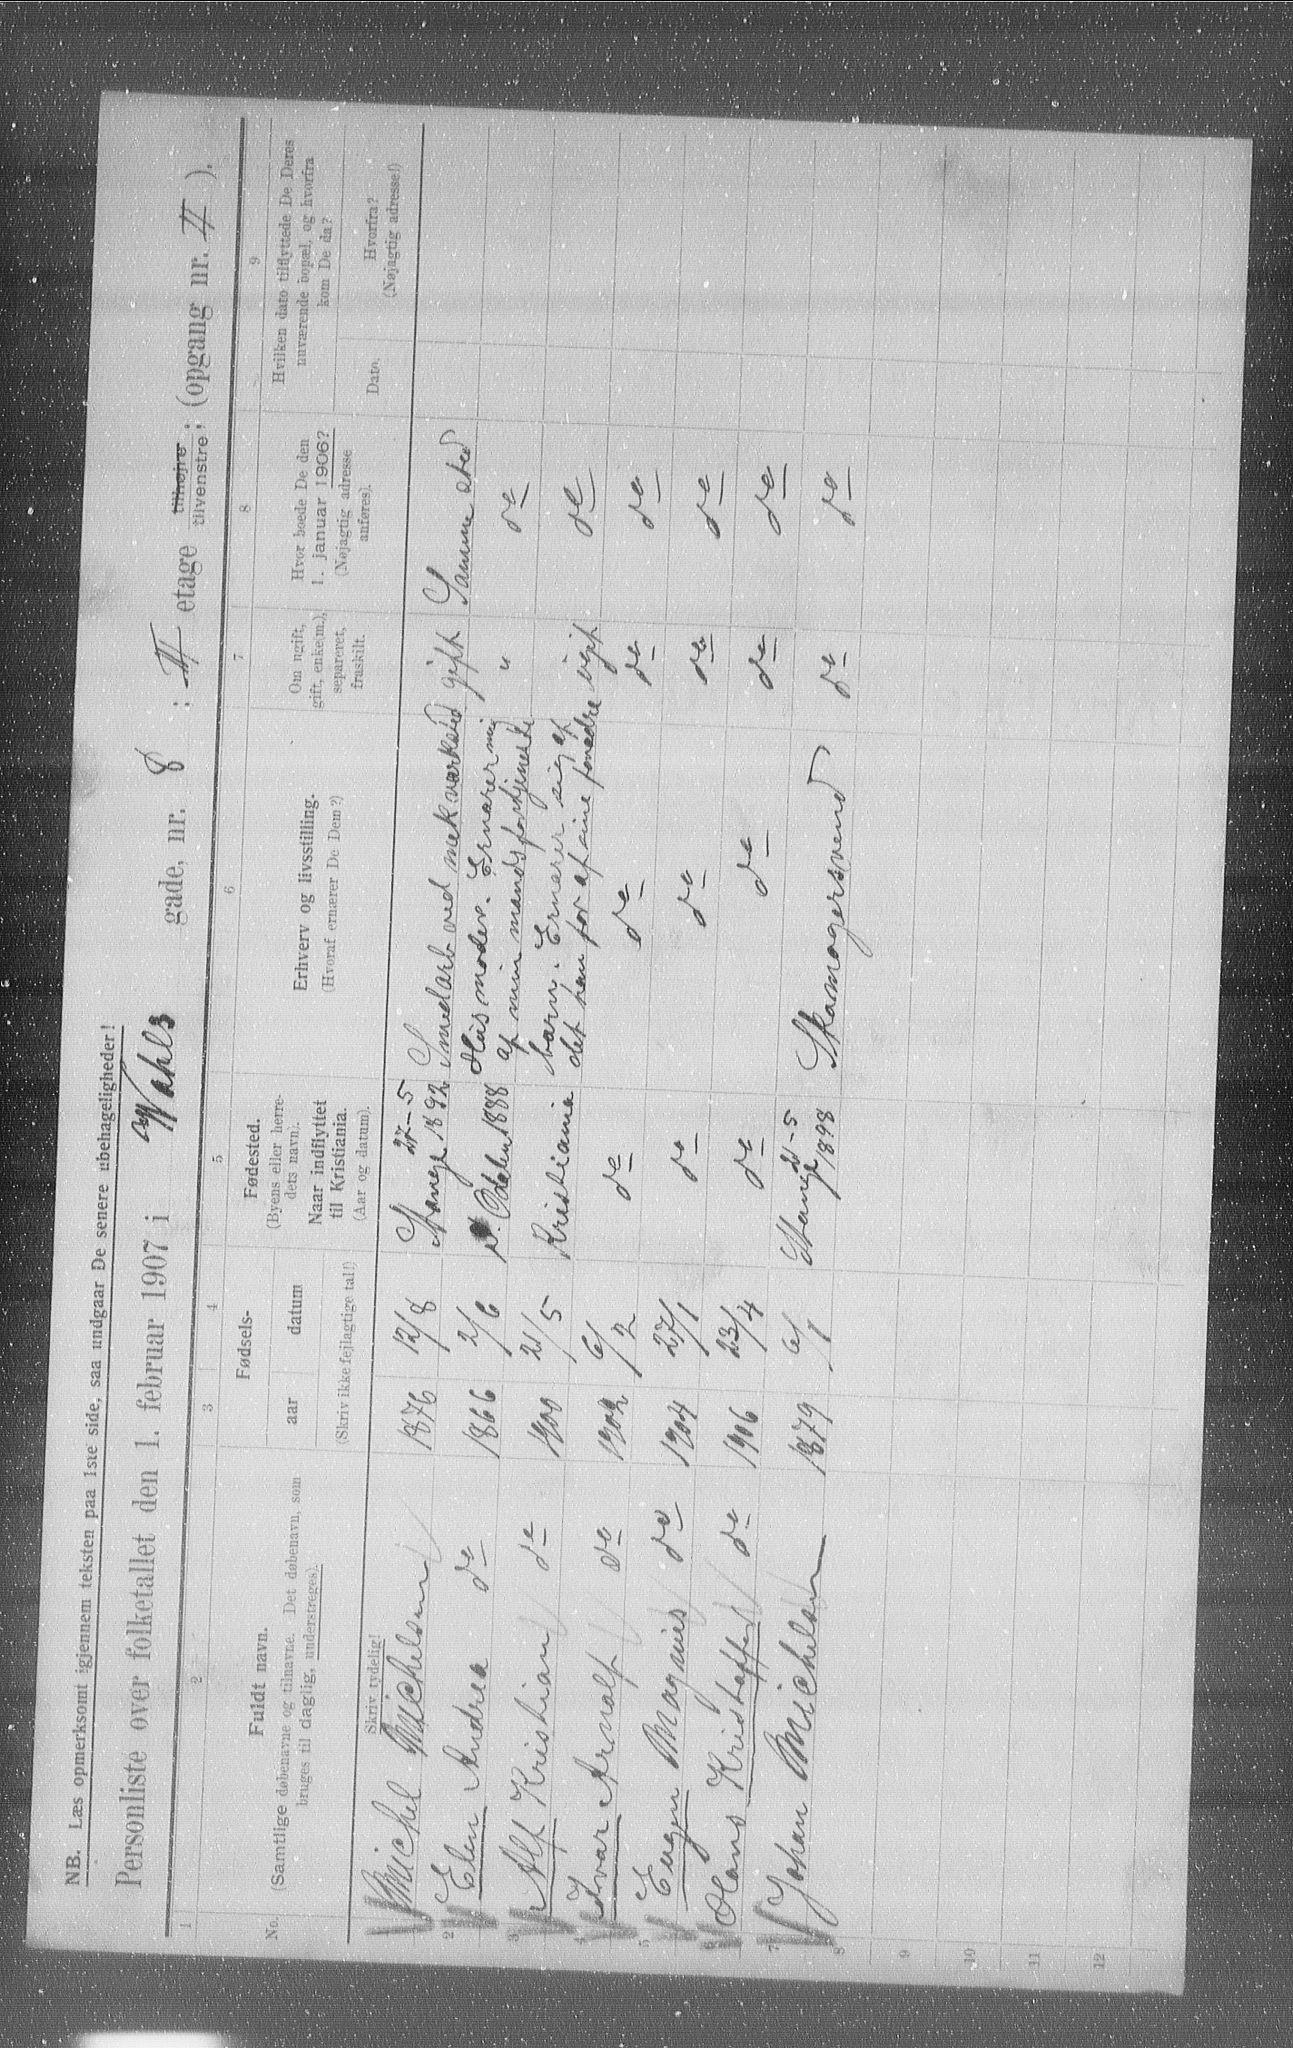 NB. Læs opmerksomt igjennem teksten paa 1ste side, saa undgaar De senere ubehageligheder!
Personliste over folketallet den 1. februar 1907 i Wahls gade, nr. 8 : II etage tilhøjre tilvenstre; (opgang nr. II ).
1 2 3 4 5 6 7 8 9
No. Fuldt navn. (Samtlige døbenavne og tilnavne. Det døbenavn, som bruges til daglig, understreges). Skriv tydelig!
Fødsels- aar datum (Skriv ikke fejlagtige tal!)
Fødested. (Byens eller herredets navn). Naar indflyttet til Kristiania. (Aar og datum).
Erhverv og livsstilling. (Hvoraf ernærer De Dem?)
Om ugift, gift, enke(m.), separeret, fraskilt.
Hvor boede De den 1. januar 1906? (Nøjagtig adresse anføres).
Hvilken dato tilflyttede De Deres nuværende bopæl, og hvorfra kom De da?
Dato. Hvorfra? (Nøjagtig adresse!)
Michel Michelsen 1876 12/8 Stange 27-5 1892 Smedarb. ved mek værksted gift Samme sted
2 Elen Andrea do 1866 2/6 Odalen 1888 Husmoder. Ernærer mig af min mands fortjeneste " do
3 Alf Kristian do 1900 21/5 Kristiania barn. Ernærer sig af det han får af sine forældre ugift do
4 Ivar Arnalf do 1902 6/2 do do do do
5 Eugen Magnus do 1904 27/1 do do do do
6 Hans Kristoffer do 1906 23/4 do do do do
7 Johan Michelsen 1879 6/1 Stange 21-5 1898 Skomagersvend do do
8
9
10
11
12